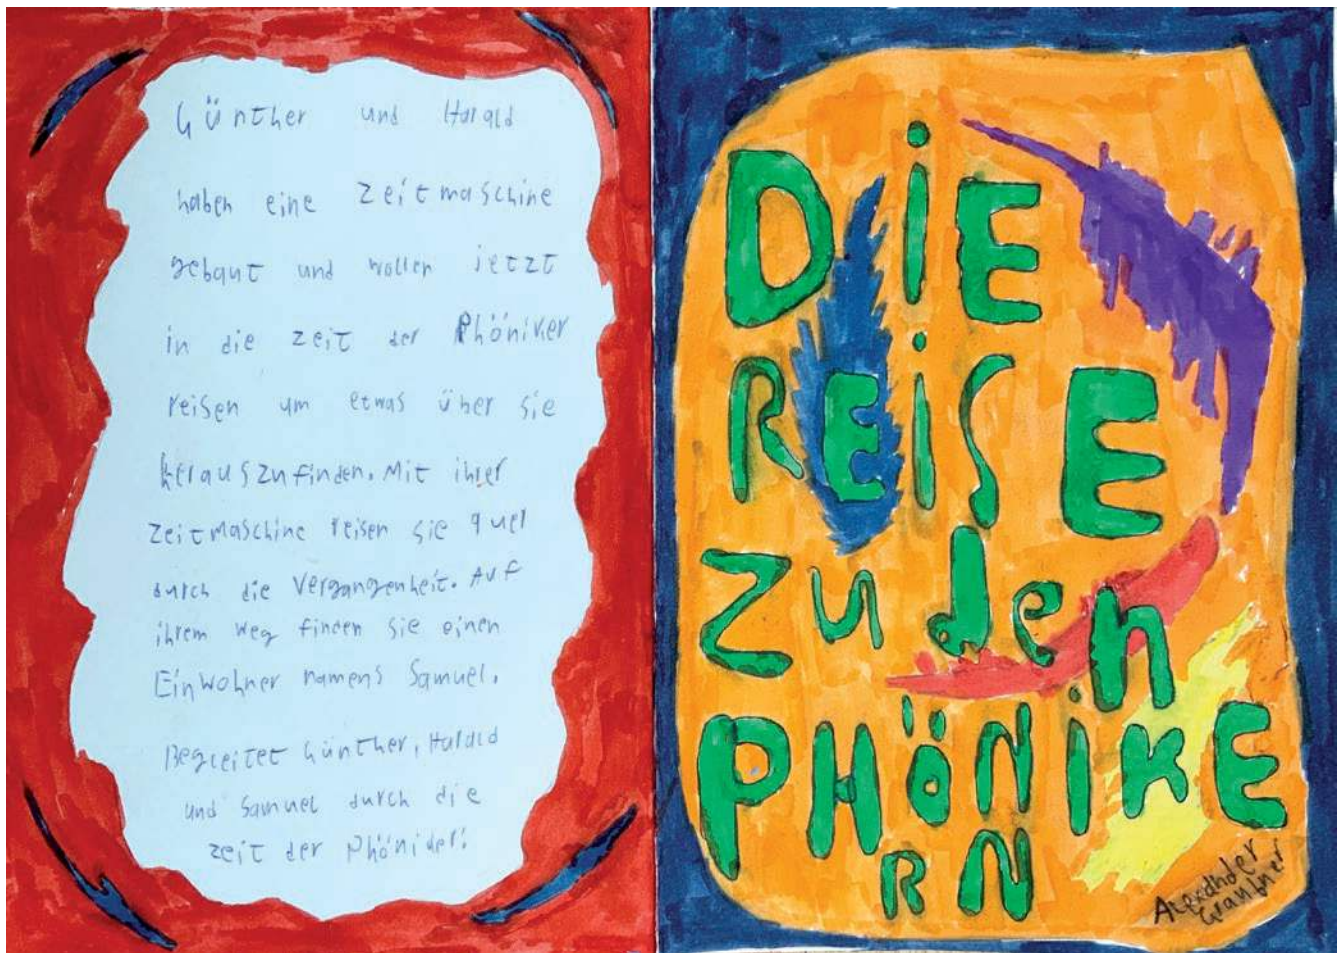 Günther und Harald
haben eine Zeitmaschine
gebaut und wollen jetzt
in die Zeit der Phöniker
reisen um etwas über sie
herauszufinden. Mit ihrer
Zeitmaschine reisen sie quer
durch die Vergangenheit. Auf
ihrem Weg finden sie einen
Einwohner namens Samuel.
Begleitet Günther, Harald
und Samuel durch die
Zeit der Phönider!
DiE
REiSE
Zu den
PHÖNiKE
RN
Alexander
Graubner